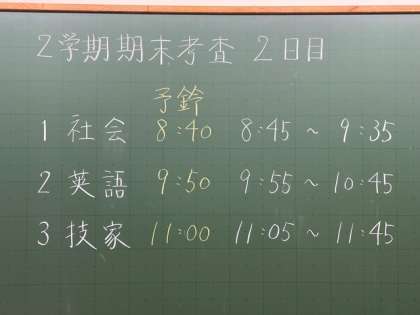 2学期期末考査 2日目
予鈴
1 社会 8:40 8:45 ~ 9:35
2 英語 9:50 9:55 ~ 10:45
3 技家 11:00 11:05 ~ 11:45